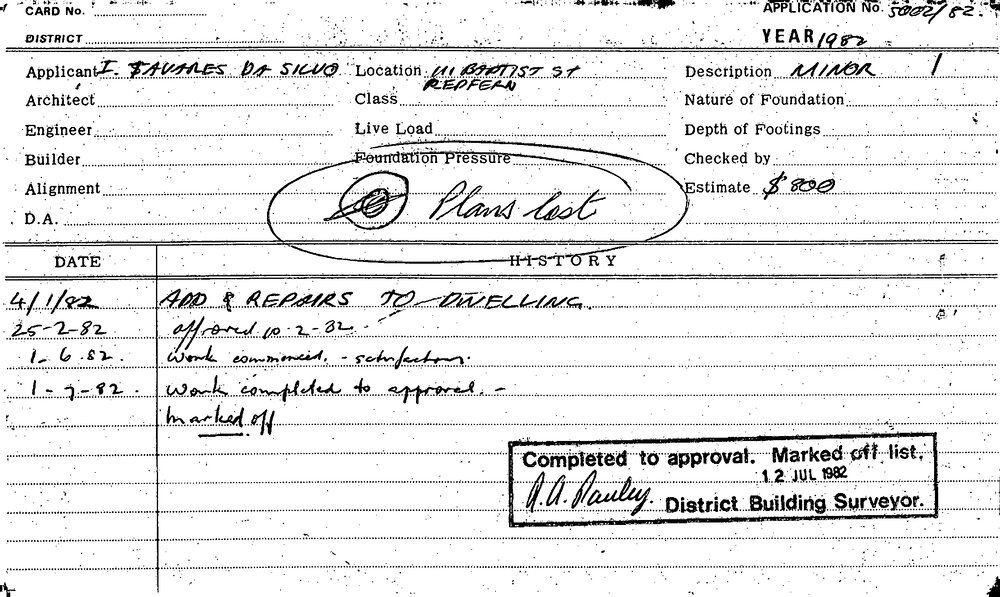 CARD No.
APPLICATION No. 5002/82.
DISTRICT
YEAR 1982
Applicant I. TAVARES DA SILVO Location 111 BAPTIST St Description MINOR 1
REDFERN
Architect Class Nature of Foundation
Engineer Live Load Depth of Footings
Builder Foundation Pressure Checked by
Alignment Estimate $800
Plans lost
D.A.
DATE HISTORY
4/1/82 ADD & REPAIRS TO DWELLING.
25-2-82 approved 10-2-82.
1-6.82. Work commenced. - satisfactory.
1-7-82. Work completed to approval. -
marked off
Completed to approval. Marked off list.
12 JUL 1982
District Building Surveyor.